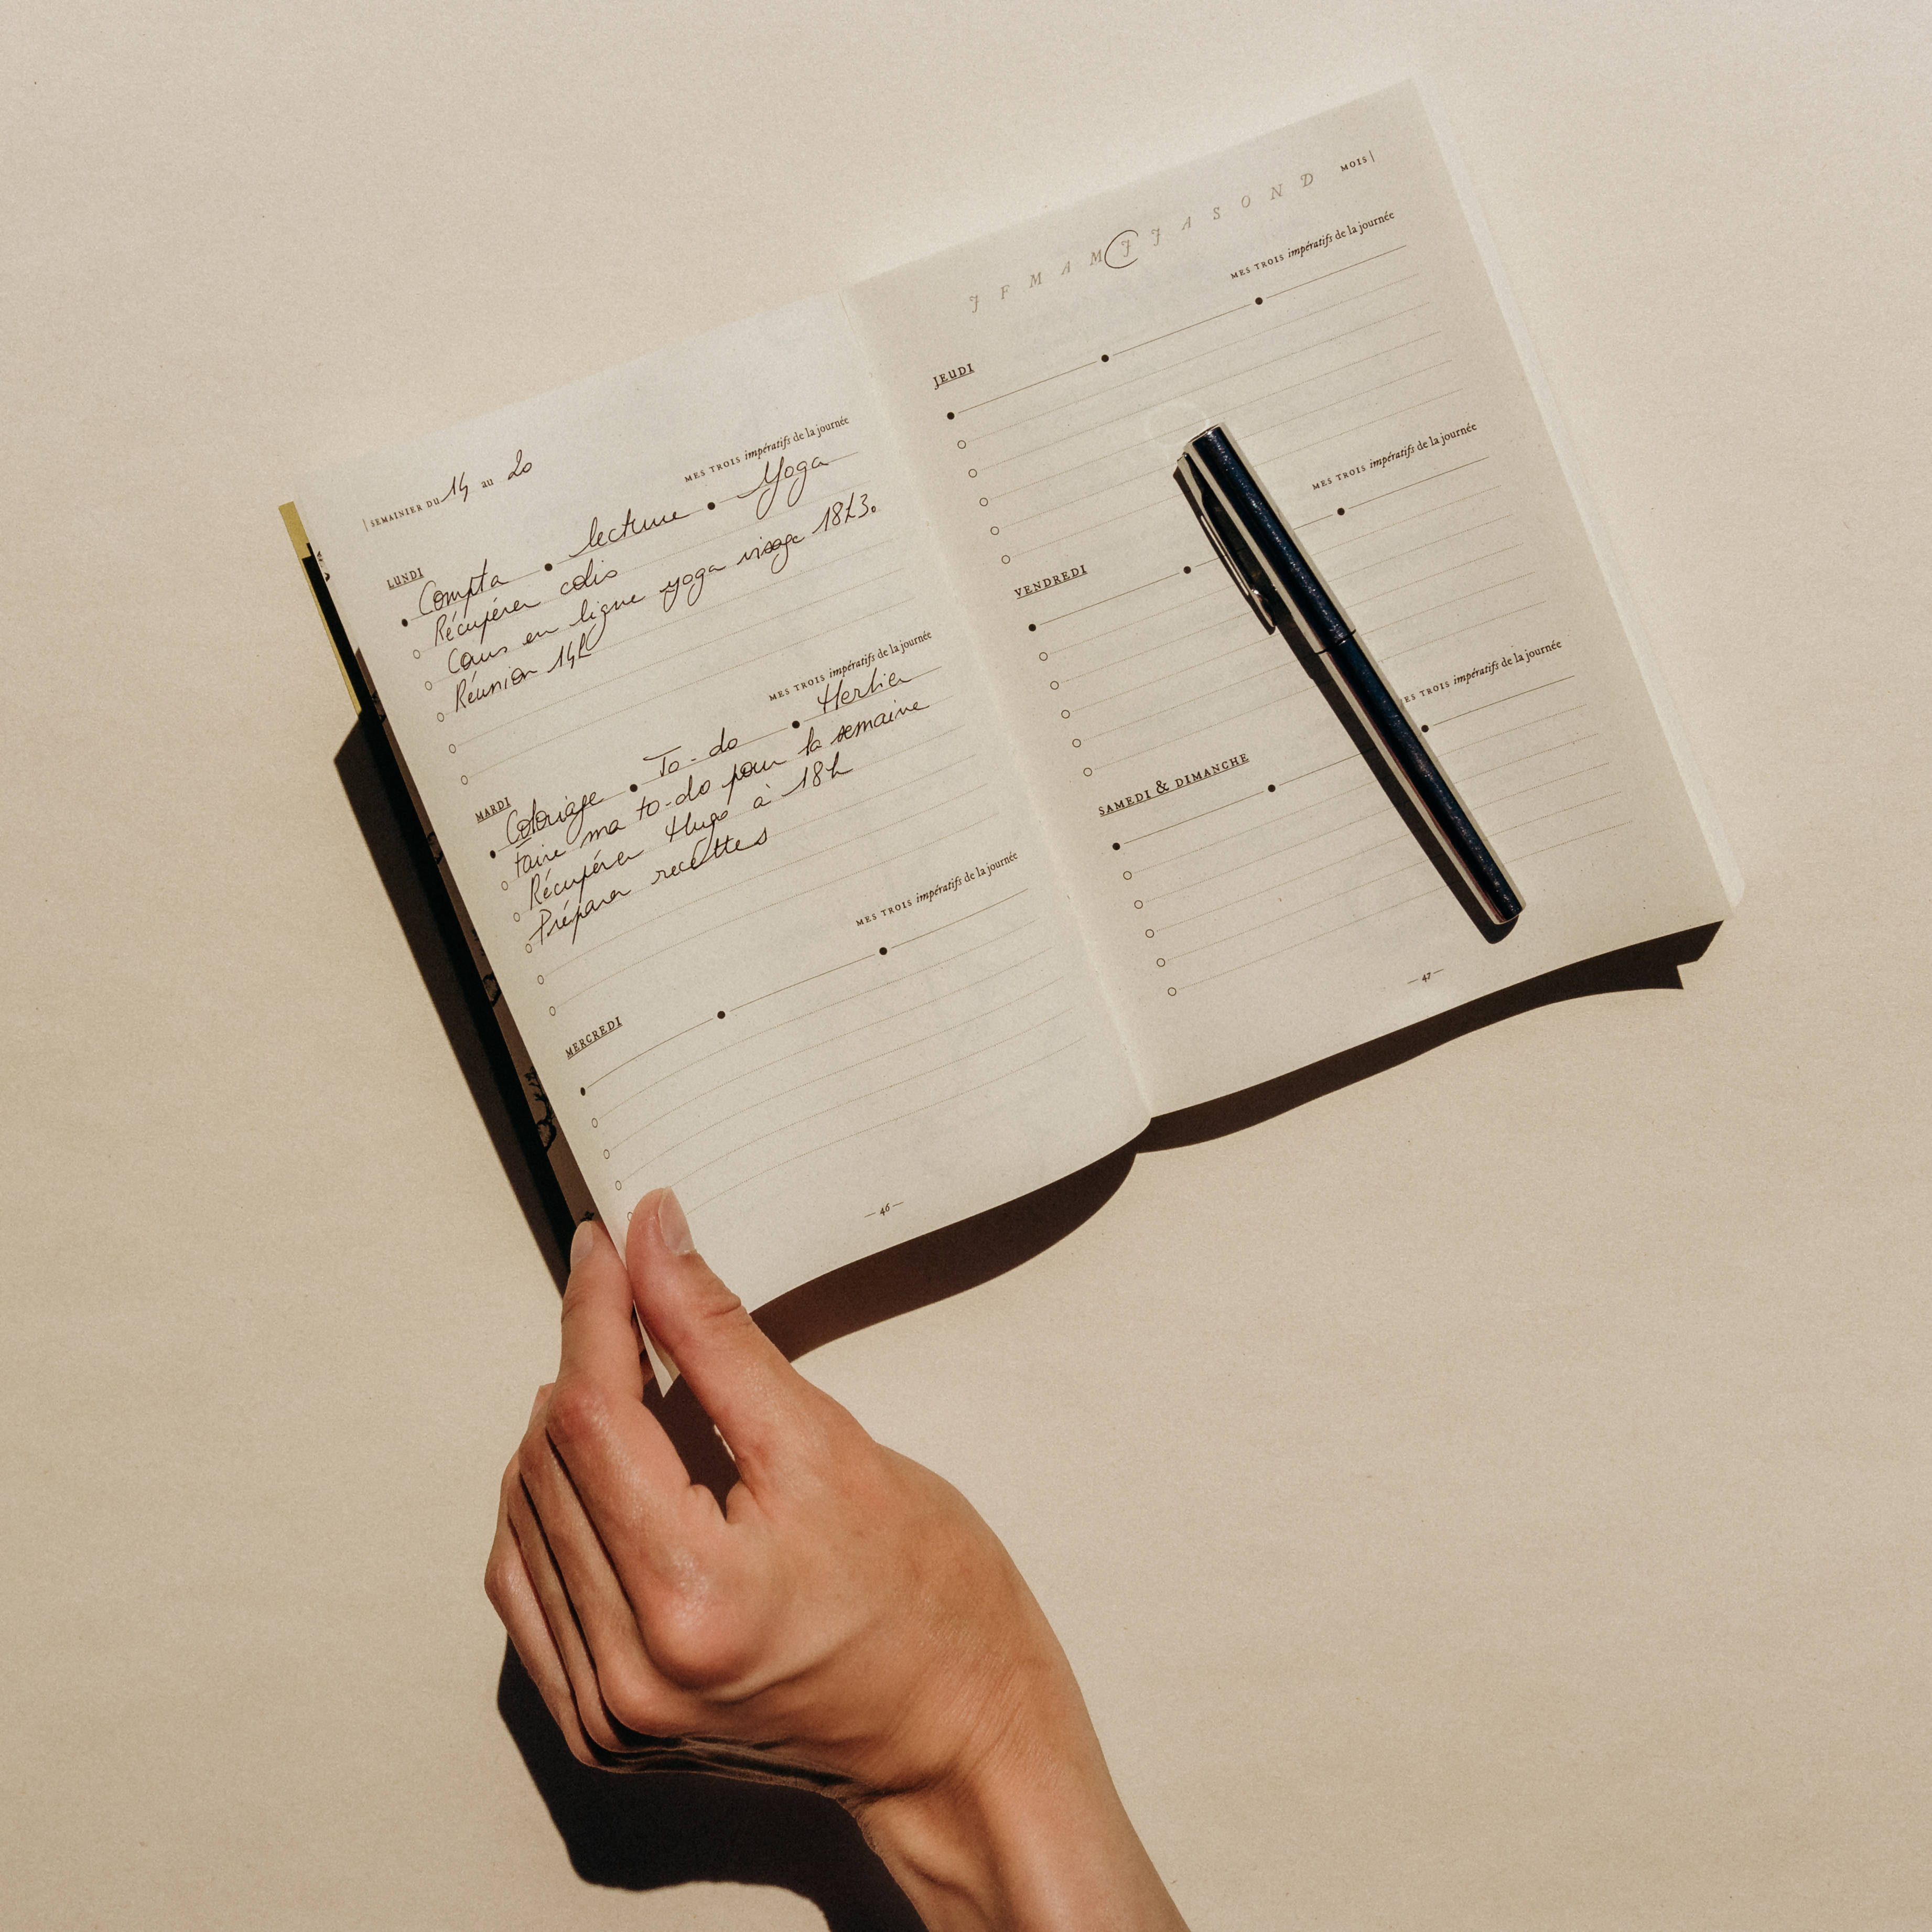 SEMAINIER DU 14 au 20
MES TROIS impératifs de la journée
LUNDI
Compta • lecture • Yoga
Récupérer colis
Cours en ligne yoga visage 18h30
Réunion 14h
MES TROIS impératifs de la journée
MARDI
Coloriage • To-do • Herbier
Faire ma to-do pour la semaine
Récupérer Hugo à 18h
Préparer recettes
MES TROIS impératifs de la journée
MERCREDI
— 46 —
J F M A M J J A S O N D MOIS
MES TROIS impératifs de la journée
JEUDI
MES TROIS impératifs de la journée
VENDREDI
MES TROIS impératifs de la journée
SAMEDI & DIMANCHE
— 47 —